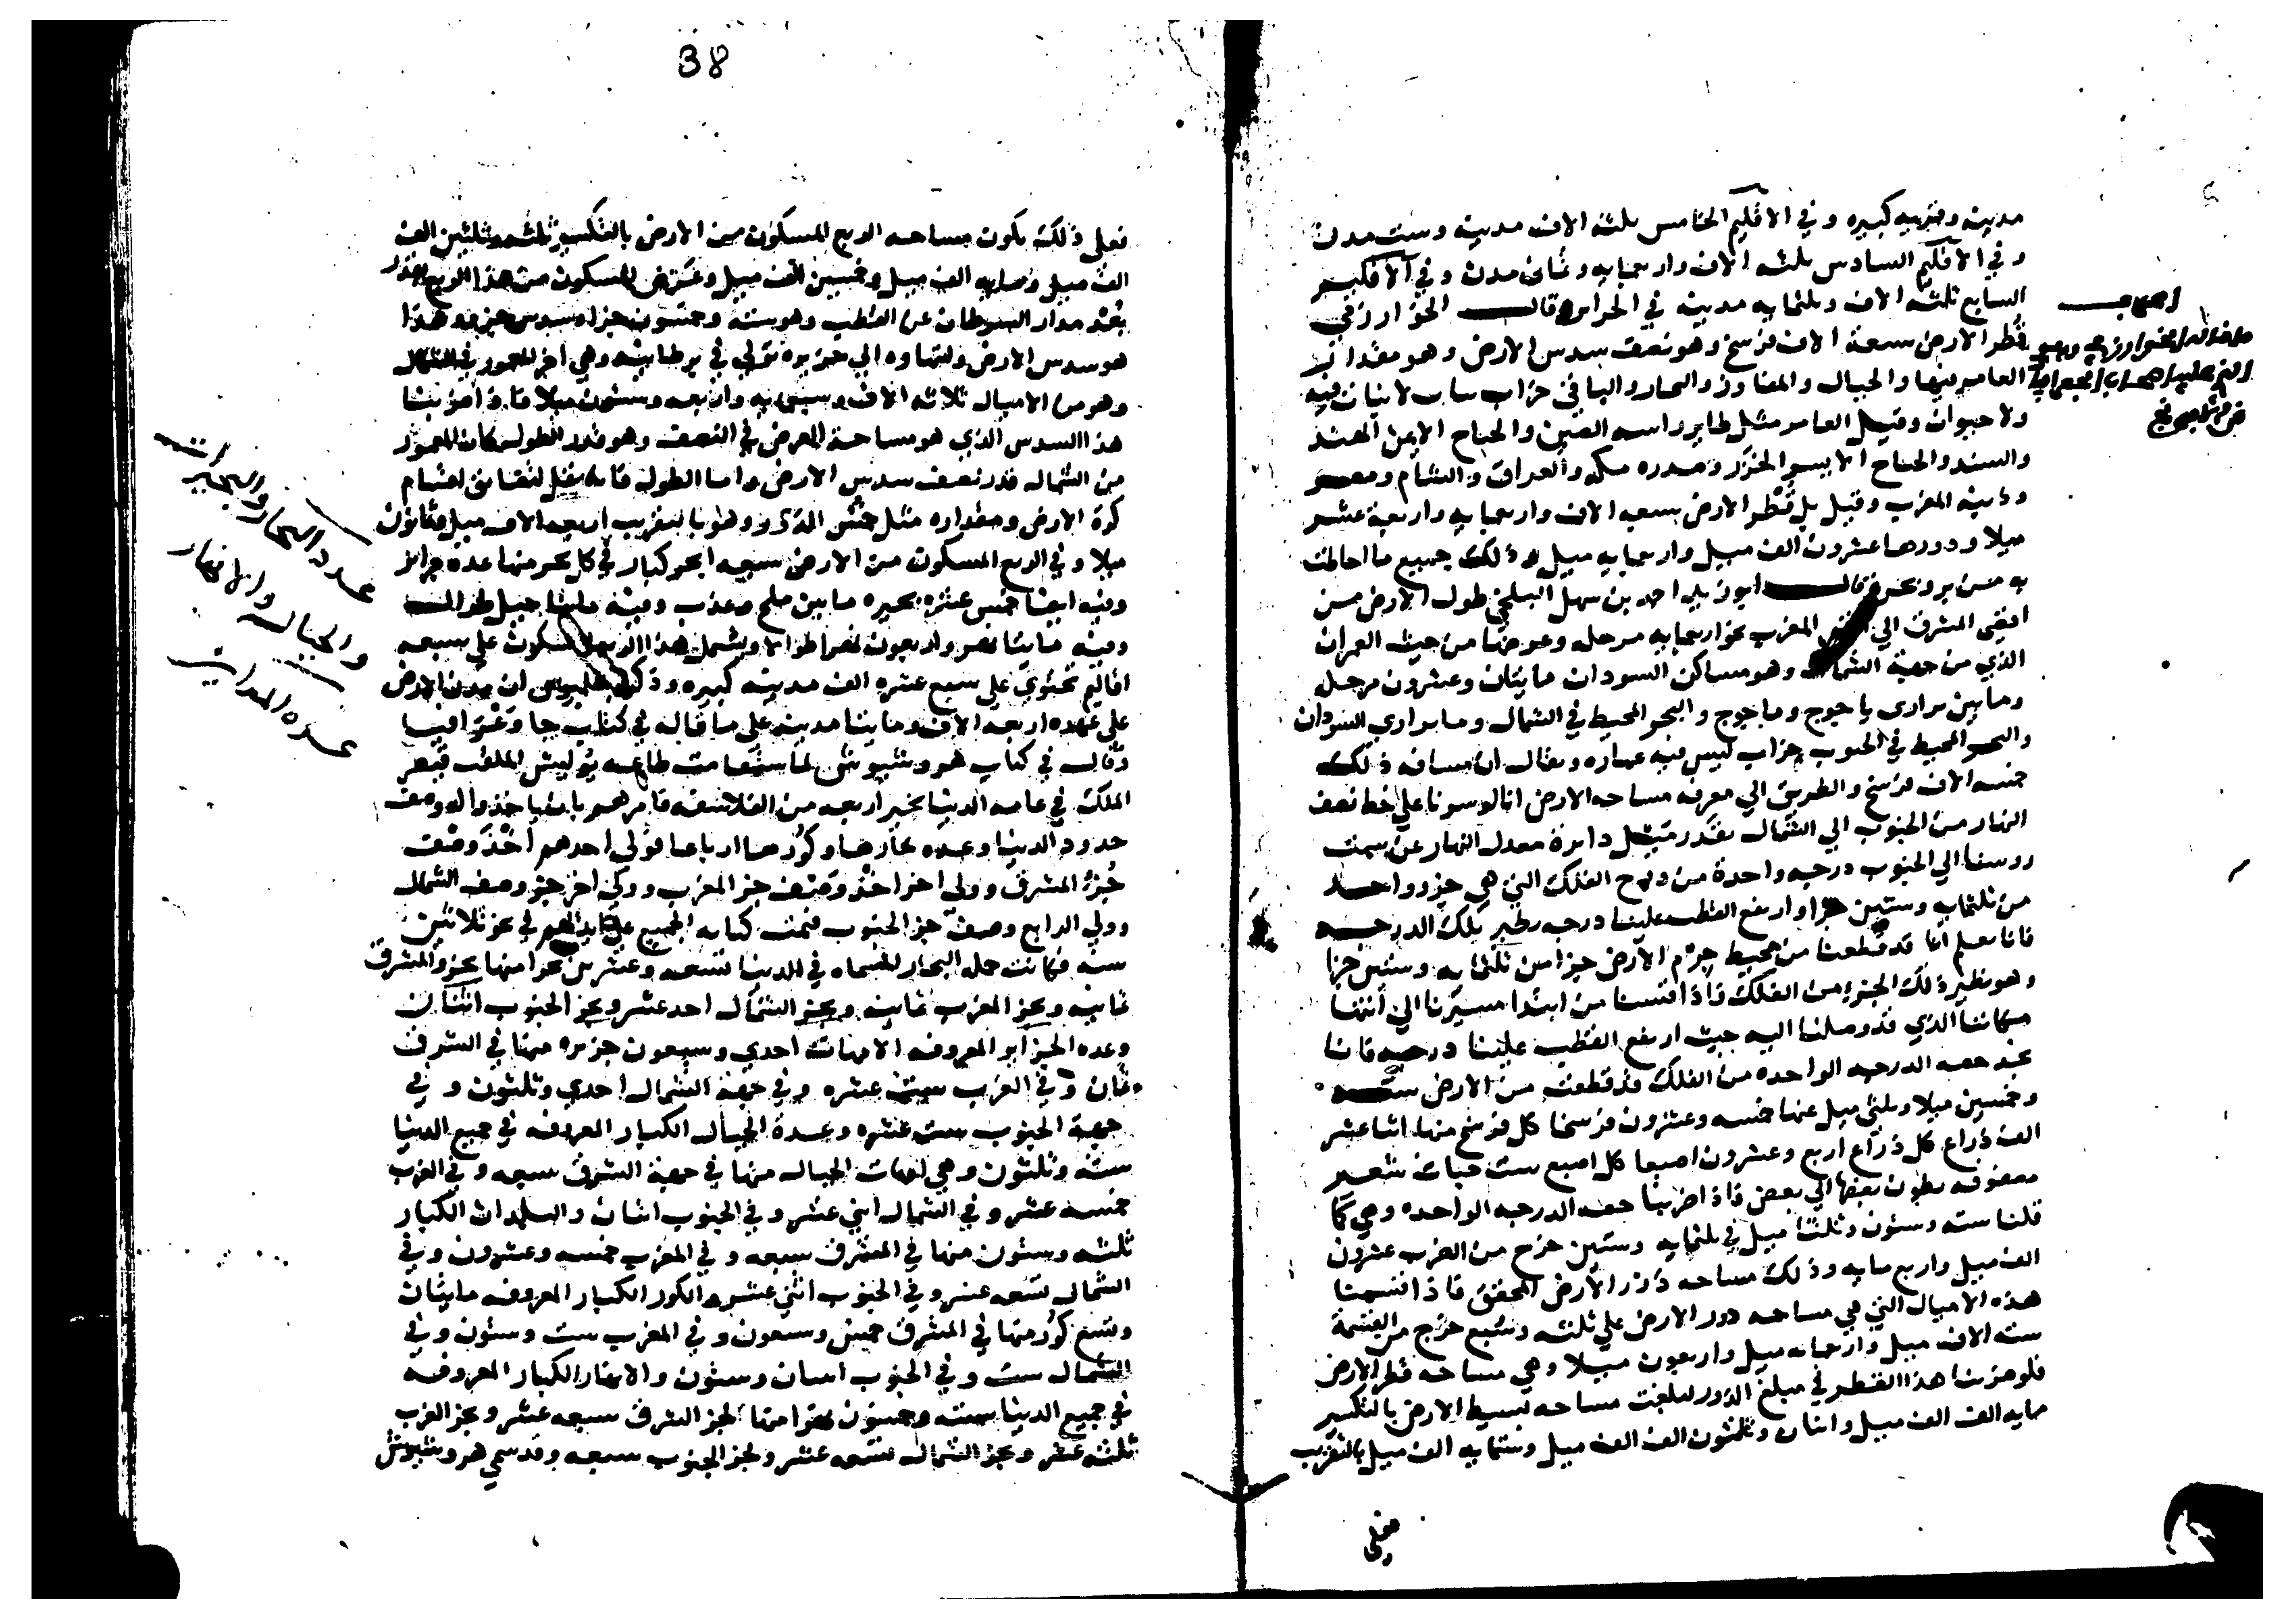 مدينه وقريه كبيره وفي الاقليم الخامس ثلثه الاف مدينه وست مدن
وفي الاقليم السادس ثلثه الاف واربعمايه وثمان مدن وفي الاقليم
السابع ثلثه الاف وثلثمايه مدينه في الجزاير قال الخوارزمي
قطر الارض سبعة الاف فرسخ وهو نصف سدس الارض وهو مقدار
العامر منها والجبال والمفاوز والبحار والباقي خراب يباب لا نبات فيه
ولا حيوان وقيل العامر مثل طاير راسه الصين والجناح الايمن الهند
والسند والجناح الايسر الخزر وصدره مكه والعراق والشام ومصر
وذنبه المغرب وقيل بل قطر الارض سبعه الاف واربعمايه واربعة عشر
ميلا ودورها عشرون الف ميل واربعمايه ميل وذلك جميع ما احاطت
به من بر وبحر قال ابو زيد احمد بن سهل البلخي طول الارض من
اقصى المشرق الي المغرب نحو اربعمايه مرحله وعرضها من حيث العمران
الذي من جهة الشمال وهو مساكن السودان مايتان وعشرون مرحله
وما بين براري ياجوج وماجوج والبحر المحيط في الشمال وما براري السودان
والبحر المحيط في الجنوب خراب ليس فيه عماره ويقال ان مسافه ذلك
خمسه الاف فرسخ والطريق الي معرفه مساحه الارض انا لو سرنا علي خط نصف
النهار من الجنوب الي الشمال بقدر ميل دايرة معدل النهار عن سمت
روسنا الي الجنوب درجه واحدة من درج الفلك التي هي جزو واحد
من ثلثمايه وستين جزا وارتفع القطب علينا درجه نظير تلك الدرجه
فانا نعلم انا قد قطعنا من محيط جرم الارض جزا من ثلثمايه وستين جزا
وهو نظير ذلك الجزو من الفلك فاذا قسنا من ابتدا مسيرنا الي انتها
مكاننا الذي قد وصلنا اليه حيث ارتفع القطب علينا درجه فانا
نجد حصه الدرجه الواحده من الفلك قد قطعت من الارض سته
وخمسين ميلا وثلثي ميل عنها خمسه وعشرون فرسخا كل فرسخ منها اثنا عشر
الف ذراع كل ذراع اربع وعشرون اصبعا كل اصبع ست حبات شعير
مصفوفه بطون بعضها الي بعض فاذا ضربنا حصه الدرجه الواحده وهي كما
قلنا سته وستون وثلثا ميل في ثلثمايه وستين خرج من الضرب عشرون
الف ميل واربع مايه وذلك مساحه دور الارض المحقق فاذا اقسمنا
هذه الاميال التي هي مساحه دور الارض علي ثلثه وسبع خرج من القسمة
سته الاف ميل واربعمايه ميل واربعون ميلا وهي مساحه قطر الارض
فلو ضربنا هذا القطر في مبلغ الدور لبلغت مساحه بسيط الارض بالتكسير
مايه الف الف ميل واثنان وثلثون الف الف ميل وستمايه الف ميل بالتقريب
38
فعلي ذلك يكون مساحه الربع المسكون من الارض بالتكسير ثلثه وثلثين الف
الف ميل ومايه الف ميل وخمسين الف ميل وعرض المسكون من هذا الربع بقدر
بعد مدار السرطان عن القطب وهو سته وخمسون جزا وسدس جزو هذا
هو سدس الارض وانتهاوه الي جزيره تولي في برطانيه وهي اخر المعمور في الشمال
وهو من الاميال ثلاثه الاف وسبعمايه واربعه وستون ميلا فاذا ضربنا
هذا السدس الذي هو مساحة العرض في النصف وهو قدر الطول كان المعمور
من الشمال قدر نصف سدس الارض واما الطول فانه يقل لتضايق اقسام
كرة الارض ومقداره مثل خمس الدور وهو بالتقريب اربعه الاف ميل وثمانون
ميلا وفي الربع المسكون من الارض سبعه ابحر كبار في كل بحر منها عده جزاير
وفيه ايضا خمس عشره بحيره ما بين ملح وعذب وفيه مايتا جبل طوال
وفيه مايتا نهر واربعون نهرا طوالا ويشمل هذا الربع المسكون علي سبعه
اقاليم تحتوي علي سبع عشره الف مدينه كبيره وذكر بطليموس ان مدن الارض
علي عهده اربعه الاف ومايتا مدينه علي ما قاله في كتاب جاوغرافيا
وقال في كتاب هروشيوش لما استقامت طاعه يوليش الملقب قيصر
الملك في عامه الدنيا تخير اربعه من الفلاسفه فامرهم بان ياخذوا له وصف
حدود الدنيا وعده بحارها وكورها ارباعا فولي احدهم اخذ وصف
جزؤ المشرق وولى اخر اخذ وصف جزو المغرب وولي اخر جزو وصف الشمال
وولي الرابع وصف جزو الجنوب فتمت كتابه الجميع علي ايديهم في نحو ثلاثين
سنه فكانت جمله البحار المسماه في الدنيا تسعه وعشرين بحرا منها بجزو المشرق
ثمانيه وبجزو المغرب ثمانيه وبجزو الشمال احد عشر وبجزو الجنوب اثنان
وعده الجزاير المعروفه الامهات احدي وسبعون جزيره منها في الشرق
ثمان وفي الغرب ست عشره وفي جهة الشمال احدي وثلثون وفي
جهة الجنوب ست عشره وعدة الجبال الكبار المعروفه في جميع الدنيا
سته وثلثون وهي امهات الجبال منها في جهة الشرق سبعه وفي الغرب
خمسه عشر وفي الشمال اثني عشر وفي الجنوب اثنان والبلدان الكبار
ثلثه وستون منها في المشرق سبعه وفي المغرب خمسه وعشرون وفي
الشمال تسعه عشر وفي الجنوب اثني عشر والكور الكبار المعروفه مايتان
وتسع كور منها في المشرق خمس وسبعون وفي المغرب ست وستون وفي
الشمال ست وفي الجنوب اثنان وستون والانهار الكبار المعروفه
في جميع الدنيا سته وخمسون نهرا منها لجزو الشرق سبعه عشر وبجزو الغرب
ثلثه عشر وبجزو الشمال تسعه عشر ولجزو الجنوب سبعه وقد سمي هروشيوش
عدد البحار والبحيرات
والجبال والانهار
عده المدائن